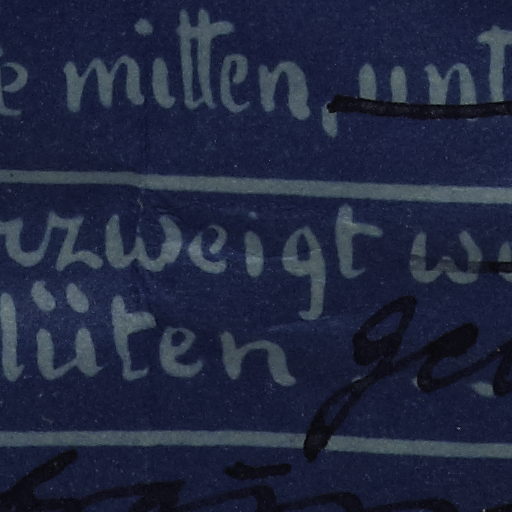 e mitten, unt
rzweigt w
lüten ge